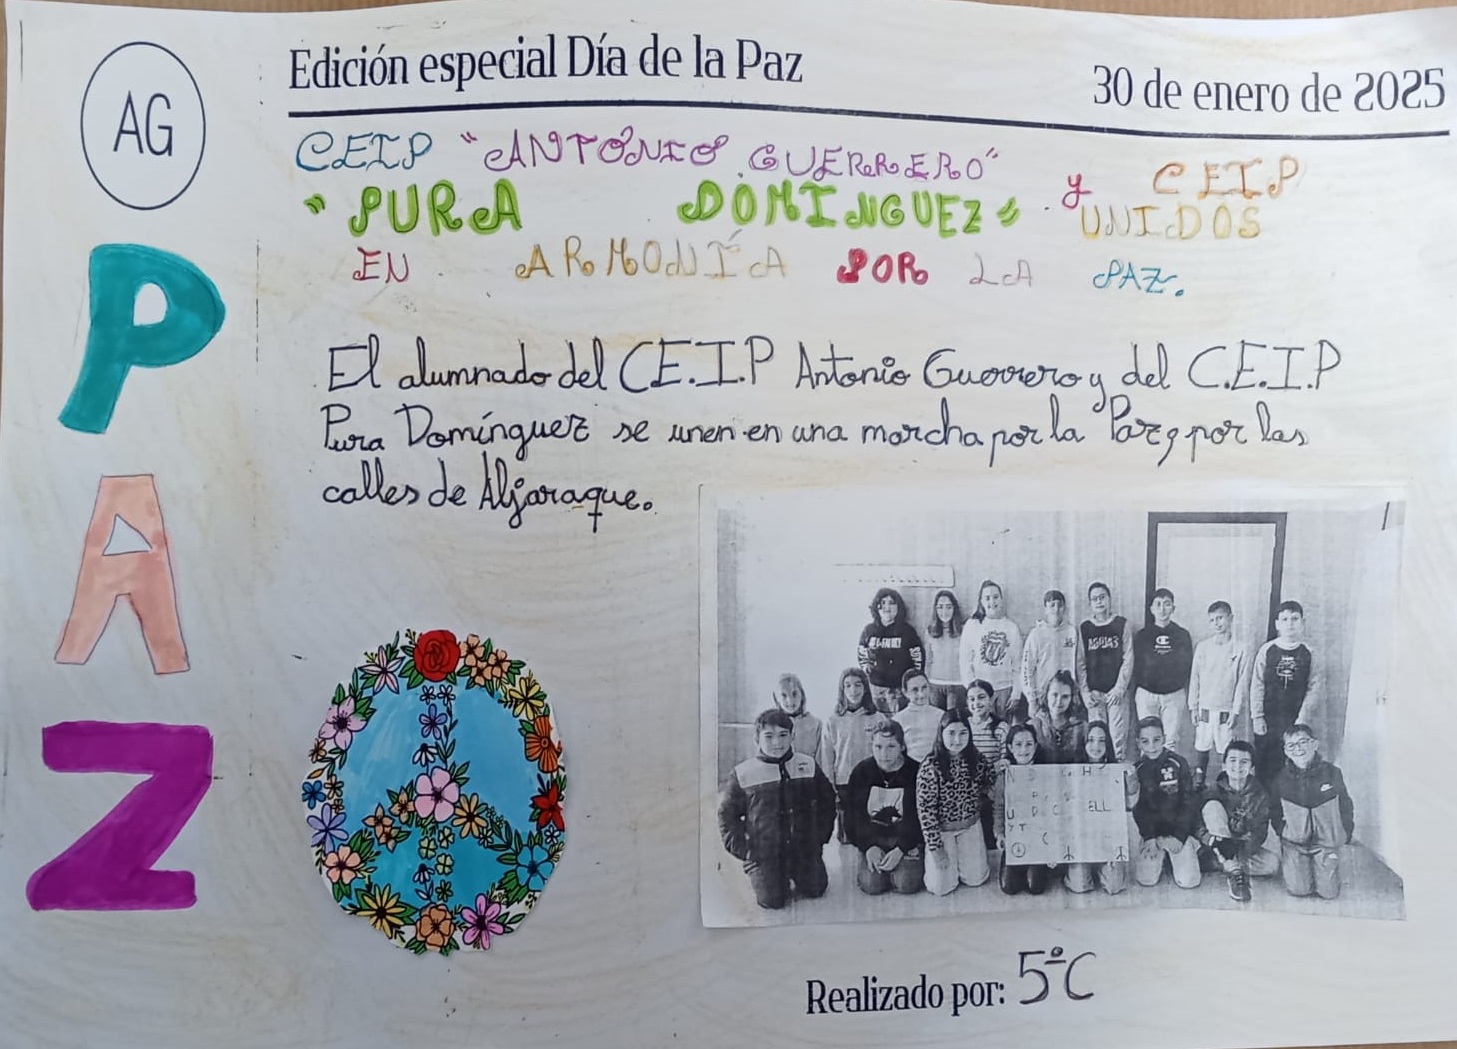 AG
Edición especial Día de la Paz
30 de enero de 2025
CEIP "ANTONIO GUERRERO"
y CEIP
"PURA DOMINGUEZ" UNIDOS
EN ARMONÍA POR LA PAZ.
El alumnado del C.E.I.P Antonio Guerrero y del C.E.I.P
Pura Domínguez se unen en una marcha por la Paz, por las
calles de Aljaraque.
PAZ
AGUJAS
ELL
Realizado por: 5ºC